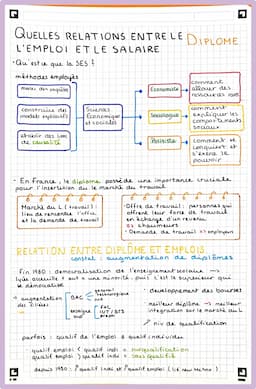 QUELLES RELATIONS ENTRE LE DIPLOME
L'EMPLOI ET LE SALAIRE
• Qu'est-ce que la SES ?
méthodes employés
mener des enquêtes
construire des modèles explicatifs
établir des liens de causalité
Sciences Economique et sociales
Economiste
Sociologue
Politiste
comment allouer des ressources rares
comment expliquer les comportements sociaux
comment se conquiert et s'exerce le pouvoir
- En France, le diplome possède une importance cruciale
pour l'insertion du le marché du travail
Marché du L (travail) :
lieu de rencontre l'offre
et la demande de travail
- Offre de travail : personnes qui
offrent leur force de travail
en échange d'un revenu
⇒ chaumeurs
- Demande de travail ⇒ employeurs
RELATION ENTRE DIPLÔME ET EMPLOIS
constat : augmentation de diplômes
fin 1980 : démocratisation de l'enseignement scolaire →
lycée accueille + aut + une minorité, puis c'est le supérieur qui
se démocratise
→ augmentation des filières
BAC
général
technologique
pro
FAC
IUT / BTS
prépa
• developpement des bourses
meilleur diplôme → meilleur
integration sur le marché du L
niv de qualification
parfois : qualif de l'emploi ≠ qualif individus
qualif emploi < qualif indi = surqualification
qualif emploi > qualif indi = sous qualifié